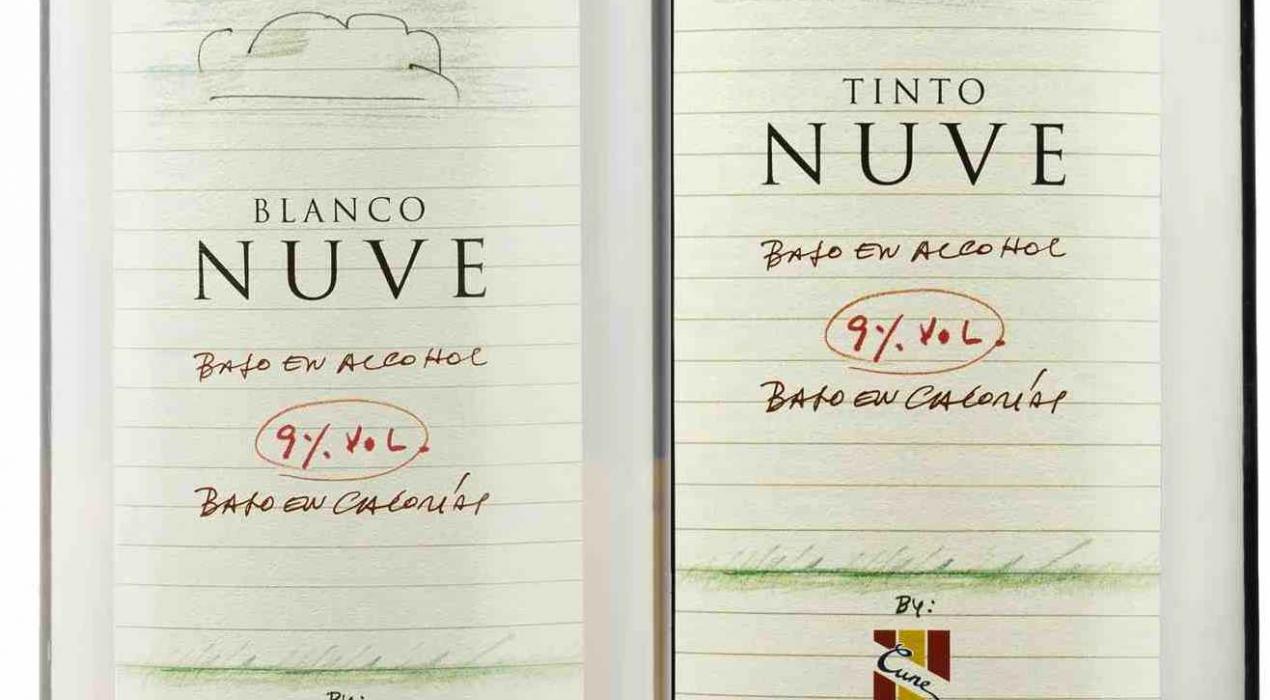 BLANCO
NUVE
BAJO EN ALCOHOL
9% VOL.
BAJO EN CALORÍAS
By:
TINTO
NUVE
BAJO EN ALCOHOL
9% VOL.
BAJO EN CALORÍAS
By:
Cune